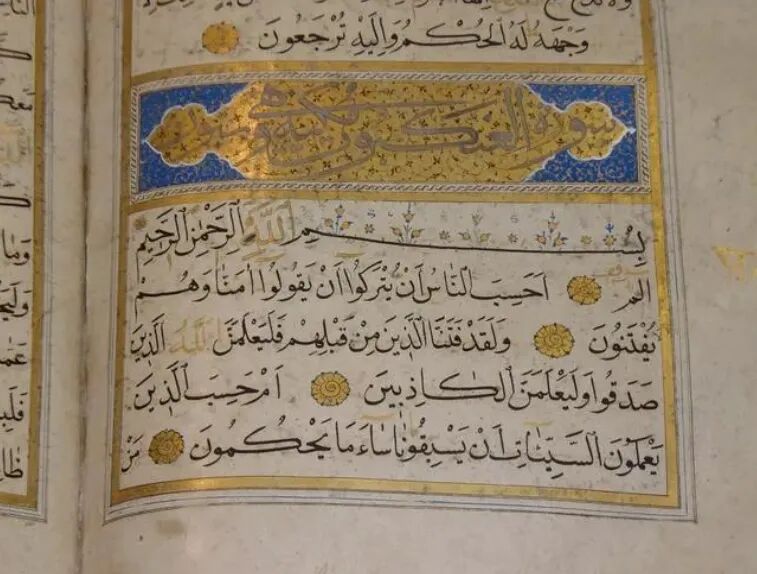 وَجْهَهُ لَهُ الْحُكْمُ وَإِلَيْهِ تُرْجَعُونَ
سورة العنكبوت مكية وهي
بِسْمِ اللَّهِ الرَّحْمٰنِ الرَّحِيمِ
الم اَحَسِبَ النَّاسُ اَنْ يُتْرَكُوا اَنْ يَقُولُوا اٰمَنَّا وَهُمْ
يُفْتَنُونَ وَلَقَدْ فَتَنَّا الَّذِينَ مِنْ قَبْلِهِمْ فَلَيَعْلَمَنَّ اللَّهُ الَّذِينَ
صَدَقُوا وَلَيَعْلَمَنَّ الْكَاذِبِينَ اَمْ حَسِبَ الَّذِينَ
يَعْمَلُونَ السَّيِّئَاتِ اَنْ يَسْبِقُونَا سَاءَ مَا يَحْكُمُونَ مَنْ